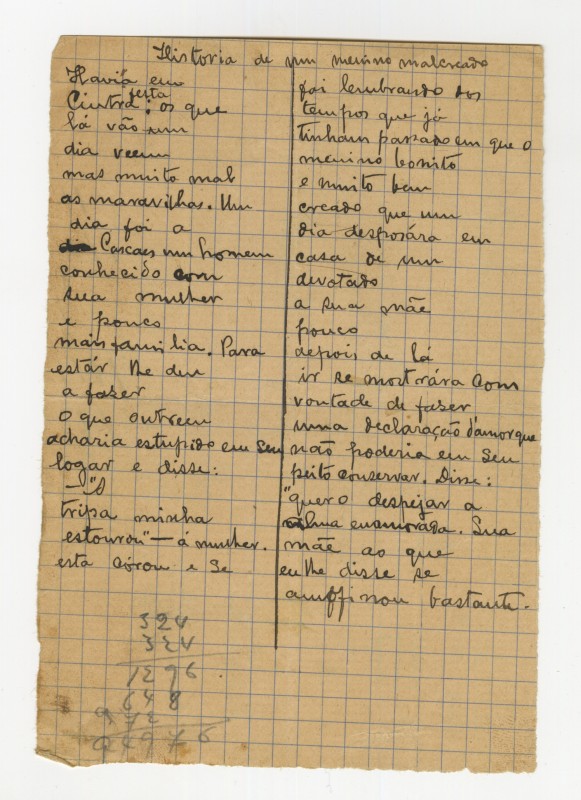 Historia de um menino malcreado
Havia em
festa
Cintra: os que
lá vão um
dia veem
mas muito mal
as maravilhas. Um
dia foi a
Cascaes um homem
conhecido com
sua mulher
e pouco
mais familia. Para
estár lhe deu
a fazer
o que outrem
acharia estupido em seu
logar e disse:
—"A
tripa minha
estourou" — á mulher.
esta córou e se
foi lembrando dos
tempos que já
tinham passado em que o
menino bonito
e muito bem
creado que um
dia desposára em
casa de um
devotado
a sua mãe
pouco
depois de lá
ir se mostrára com
vontade de fazer
uma declaração d'amor que
não poderia em seu
peito conservar. Disse:
"quero despejar a
alma enamorada. Sua
mãe ao que
eu lhe disse se
amoffinou bastante.
324
324
1296
648
972
94976